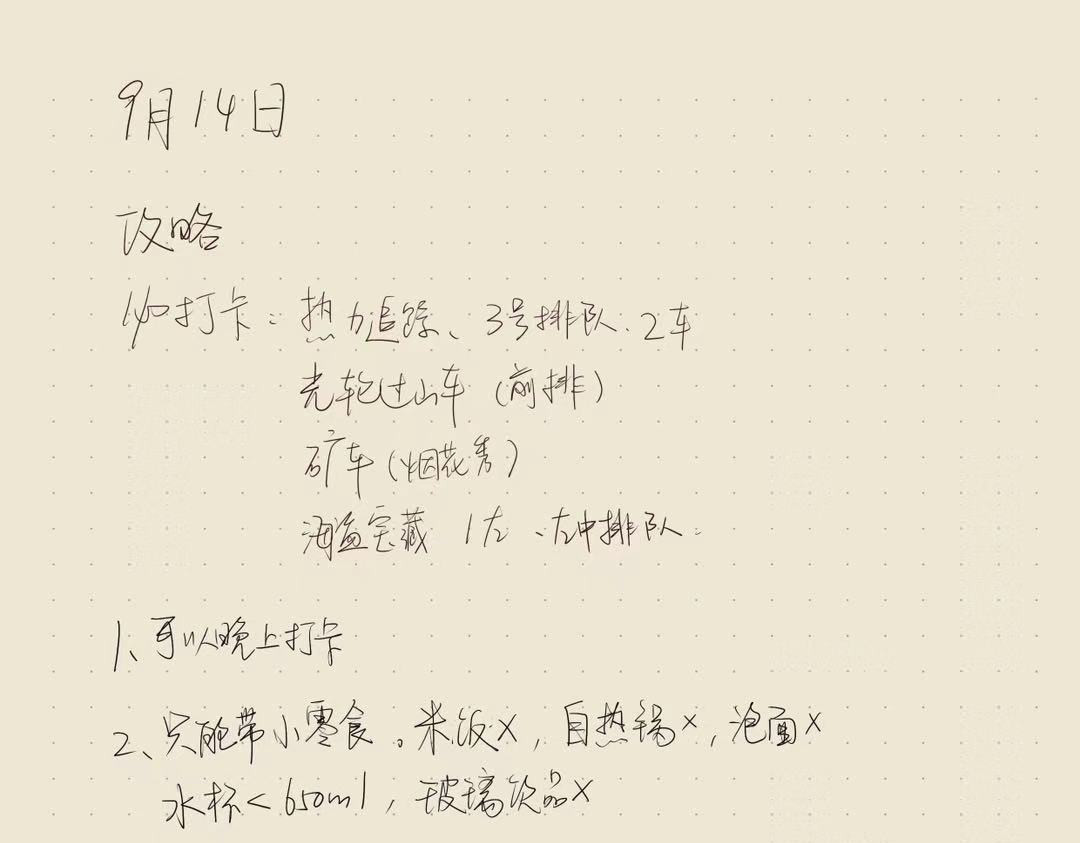 9月14日
攻略
必打卡：热力追踪、3号排队.2车
光轮过山车（前排）
矿车（烟花秀）
海盗宝藏 1左、左中排队.
1、可以晚上打卡
2、只能带小零食。米饭×，自热锅×，泡面×
水杯<650ml，玻璃饮品×